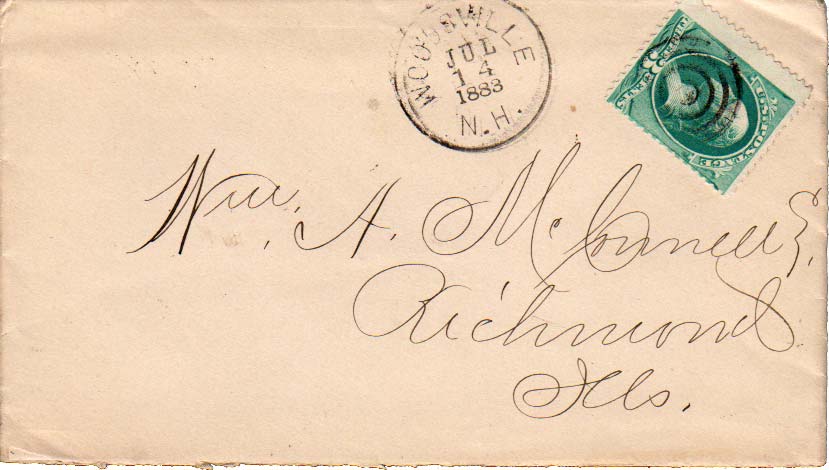 WOODSVILLE
JUL
14
1883
N.H.
U.S. POSTAGE
Wm. A. McConnell
Richmond
Ills.